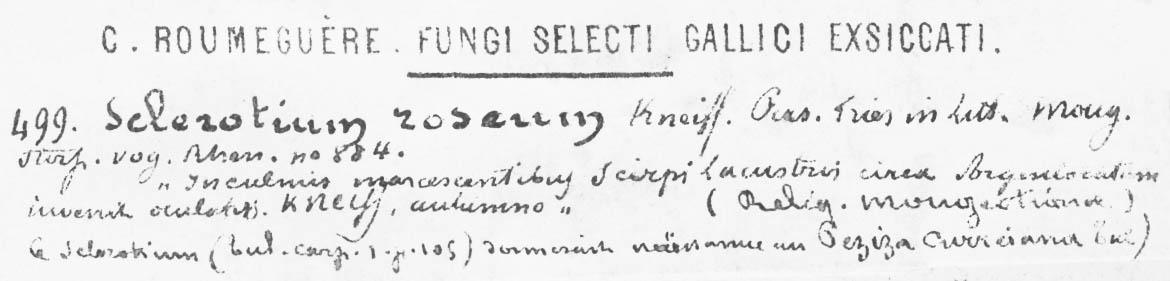 C. ROUMEGUÈRE. FUNGI SELECTI GALLICI EXSICCATI.
499. Sclerotium roseum Kneiff. Pers. Fries in Litt. Moug.
Stirp. vog. Rhen. no 884.
„ In culmis marcescentibus Scirpi Lacustris circa Argentoratum
invenit oculatiss. Kneiff, autumno „ ( Reliq. Mougeotianae )
Le Sclerotium ( Tul. Carp. 1. p. 105 ) au Peziza Curreiana Tul )